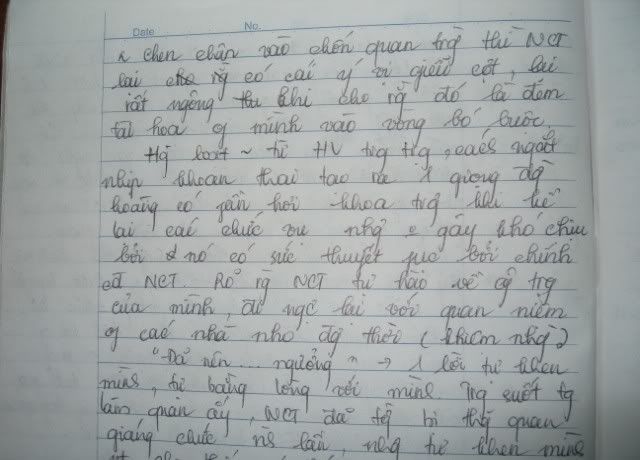 Date No.
chen chân vào chốn quan trg thì NCT
lại cho rg có cái ý vị giễu cợt, lại
rất ngông khi cho rg đó là đem
tài hoa of mình vào vòng bó buộc.
Hg loạt ~ từ HV trg trg, cách ngắt
nhịp khoan thai tạo ra 1 giọng đg
hoàng có phần hơi khoa trg khi kể
lại các chức vụ nhg o gây khó chịu
bởi nó có sức thuyết fục bởi chính
cđ NCT. Rõ rg NCT tự hào về cg trg
của mình, đi ngc lại với quan niệm
of các nhà nho đg thời (khiêm nhg)
"Đã nên ... ngưởng" → 1 lời tự khen
mình, tự bằng lòng với mình. Trg suốt tg
làm quan ấy, NCT đã từg bị thg quan
giáng chức nh lần, nhg tự khen mình